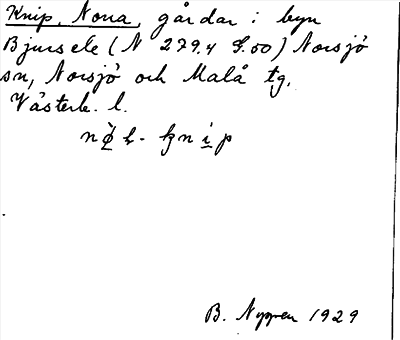 Knip, Norra, gårdar i byn
Bjursele (N 279.4 S.50) Norsjö
sn, Norsjö och Malå tg.
Västerb. l.
B. Nygren 1929